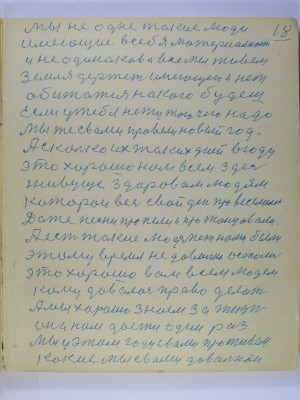 18
мы не одне такие люди
имеющие всебя материалност
и не одинакова всеми живем
Земля держет имеющих и нет
обижатся на кого будеш
Если утебя нету того чего надо
Мы же свами провели новый год.
А сколко их таких дней в году
это хорошо нам всем здес
живуще здоровам людям
котором вес свой ден провеселили
Даже песни пропели и протанцовали.
А ест такие люди
этому время не довала
это хорошо вам всем людем
кому довался право делат
А мы хорошо знаем за жизн
она нам даети один раз
Мы у этом году свами
какие мы свами доволнои